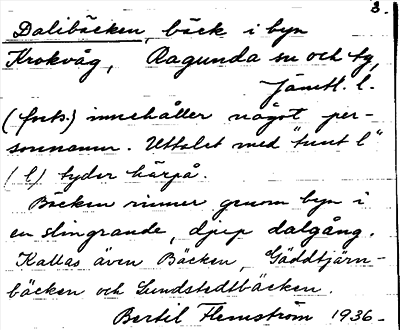 3.
Dalibäcken, bäck i byn
Krokvåg, Ragunda sn och tg,
Jämtl. l.
(forts.) innehåller något per-
sonnamn. Uttalet med "tunt l"
(l) tyder härpå.
Bäcken rinner genom byn i
en slingrande, djup dalgång.
Kallas även Bäcken, Gäddtjärn-
bäcken och Lundstedtbäcken.
Bertil Flemström 1936